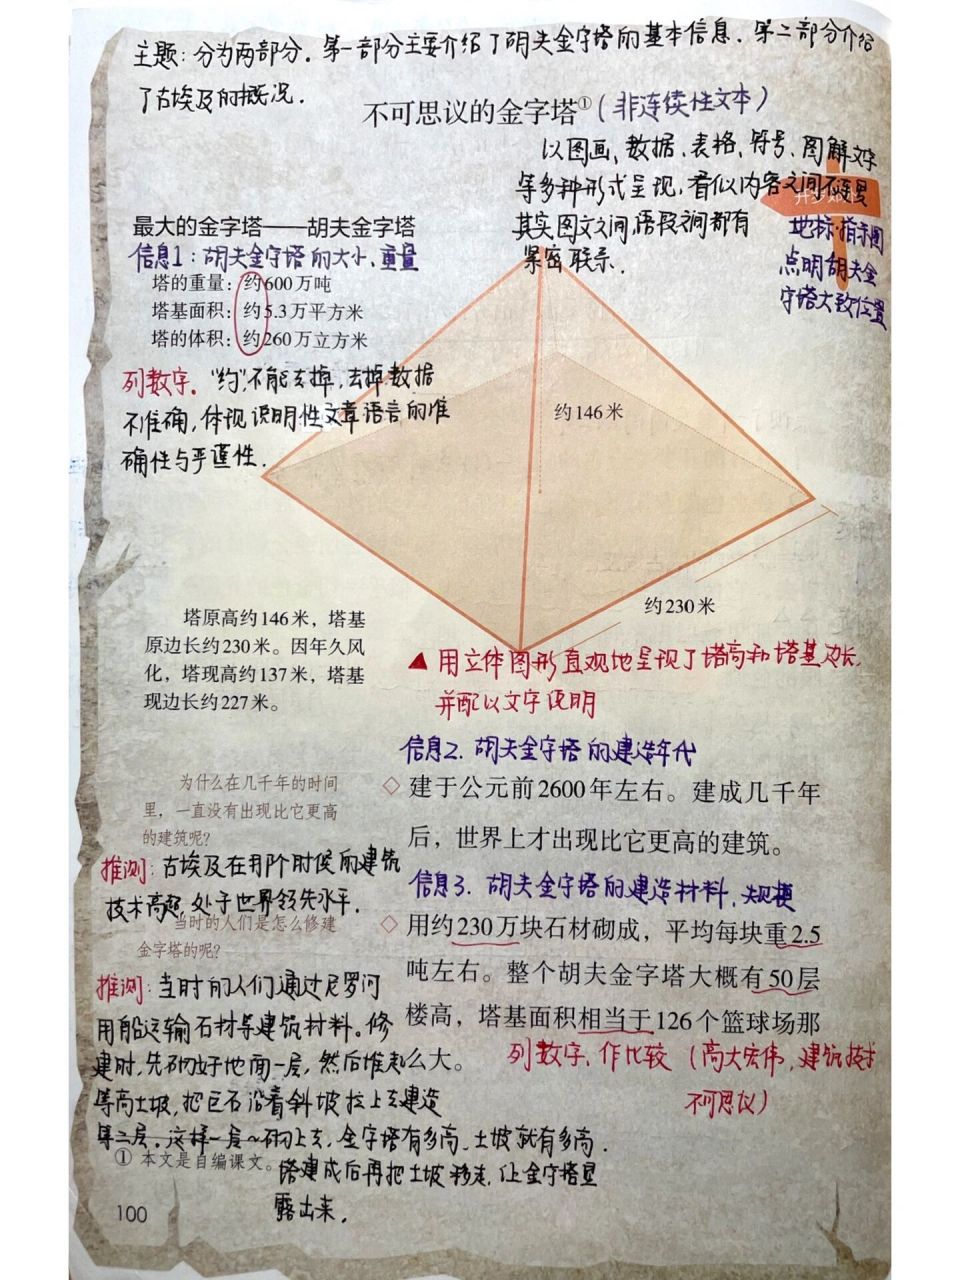 主题：分为两部分。第一部分主要介绍了胡夫金字塔的基本信息．第二部分介绍
了古埃及的概况．
不可思议的金字塔①（非连续性文本）
以图画、数据、表格、符号、图解文字
等多种形式呈现，看似内容之间不连贯
其实图文之间，语段之间都有
紧密联系．
地标·指示图
点明胡夫金
字塔大致位置
最大的金字塔——胡夫金字塔
信息1：胡夫金字塔的大小、重量
塔的重量：约600万吨
塔基面积：约5.3万平方米
塔的体积：约260万立方米
列数字．"约"不能去掉，去掉数据
不准确，体现说明性文章语言的准
确性与严谨性．
约146米
约230米
塔原高约146米，塔基
原边长约230米。因年久风
化，塔现高约137米，塔基
现边长约227米。
▲用立体图形直观地呈现了塔高和塔基边长，
并配以文字说明
信息2．胡夫金字塔的建造年代
◇建于公元前2600年左右。建成几千年
后，世界上才出现比它更高的建筑。
为什么在几千年的时间
里，一直没有出现比它更高
的建筑呢？
推测：古埃及在那个时候的建筑
技术高超，处于世界领先水平．
信息3．胡夫金字塔的建造材料、规模
◇用约230万块石材砌成，平均每块重2.5
吨左右。整个胡夫金字塔大概有50层
楼高，塔基面积相当于126个篮球场那
么大。
列数字、作比较（高大宏伟，建筑技术
不可思议）
当时的人们是怎么修建
金字塔的呢？
推测：当时的人们通过尼罗河
用船运输石材等建筑材料。修
建时，先砌好地面一层，然后堆起
等高土坡，把巨石沿着斜坡拉上去建造
第二层．这样一层~砌上去，金字塔有多高，土坡就有多高．
塔建成后再把土坡移走，让金字塔显
露出来．
①本文是自编课文。
100